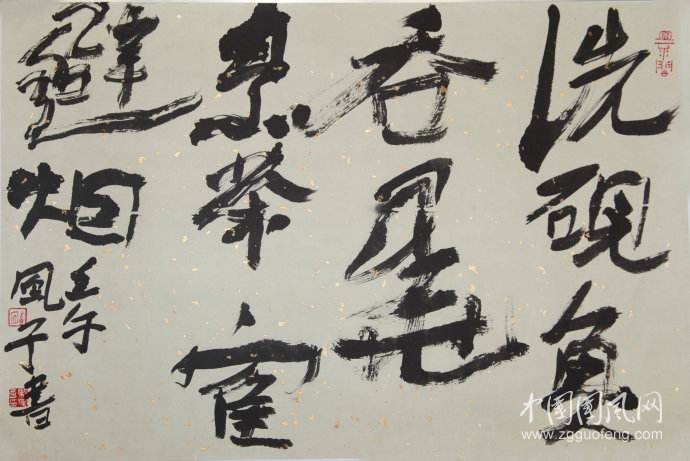 洗硯魚
吞墨
烹茶寉
避烟
壬午
風子書
中國國风网
www.zgguofeng.com